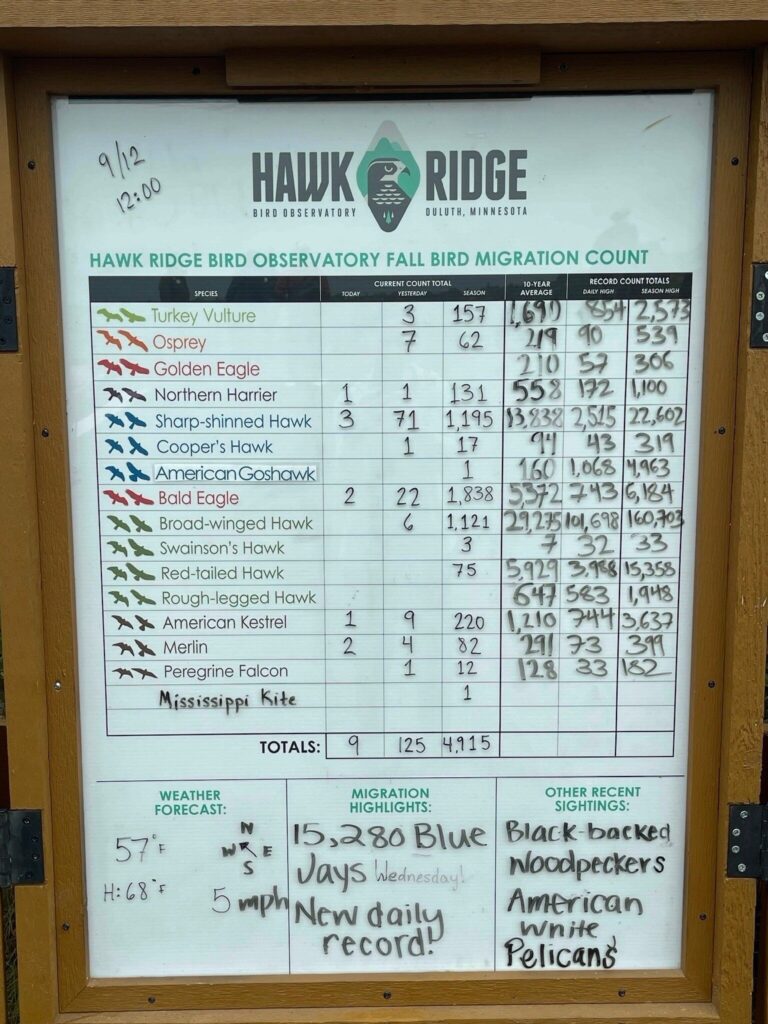 9/12
12:00
HAWK RIDGE
BIRD OBSERVATORY DULUTH, MINNESOTA
HAWK RIDGE BIRD OBSERVATORY FALL BIRD MIGRATION COUNT
CURRENT COUNT TOTAL 10-YEAR AVERAGE RECORD COUNT TOTALS
SPECIES TODAY YESTERDAY SEASON DAILY HIGH SEASON HIGH
Turkey Vulture 3 157 1,690 854 2,573
Osprey 7 62 219 90 539
Golden Eagle 210 57 306
Northern Harrier 1 1 131 558 172 1,100
Sharp-shinned Hawk 3 71 1,195 13,838 2,515 22,602
Cooper's Hawk 1 17 94 43 319
American Goshawk 1 160 1,068 4,963
Bald Eagle 2 22 1,838 5,372 743 6,184
Broad-winged Hawk 6 1,121 29,275 101,698 160,703
Swainson's Hawk 3 7 32 33
Red-tailed Hawk 75 5,929 3,988 15,358
Rough-legged Hawk 647 583 1,948
American Kestrel 1 9 220 1,210 744 3,637
Merlin 2 4 82 291 73 399
Peregrine Falcon 1 12 128 33 182
Mississippi Kite 1
TOTALS: 9 125 4,915
WEATHER FORECAST:
57°F
H:68°F
N
W E
S
5 mph
MIGRATION HIGHLIGHTS:
15,280 Blue
Jays Wednesday!
New daily
record!
OTHER RECENT SIGHTINGS:
Black-backed
Woodpeckers
American
White
Pelicans